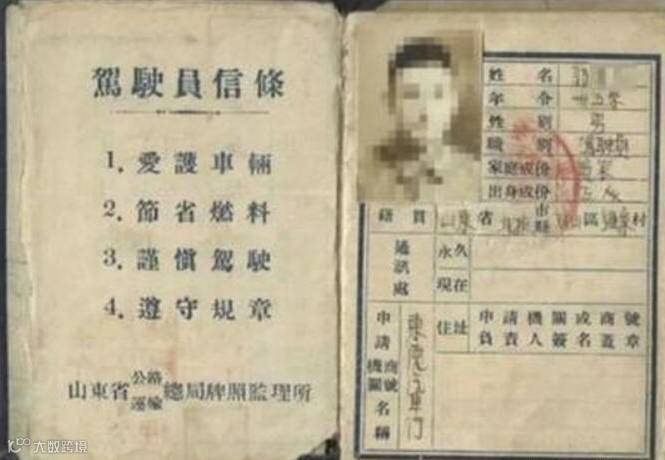 駕駛員信條
1. 愛護車輛
2. 節省燃料
3. 謹慎駕駛
4. 遵守規章
山東省公路運輸總局牌照監理所
姓名
年令 卅五岁
性別 男
職別 駕駛員
家庭成份
出身成份
籍貫 山東省 市縣 區 村
通訊處
永久
現在
申請機關商號名稱
住址
申請機關或商號負責人簽名蓋章
大数跨境